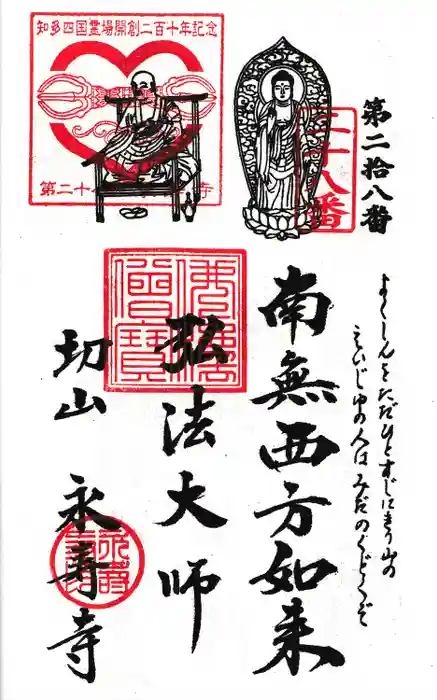 知多四国霊場開創二百十年記念
第二十
寺
二十八番
第二拾八番
よくしんをただひとすじにきり山の
えいじゆの人はみだのくどくぞ
南無西方如来
弘法大師
佛法僧寳
切山 永壽寺